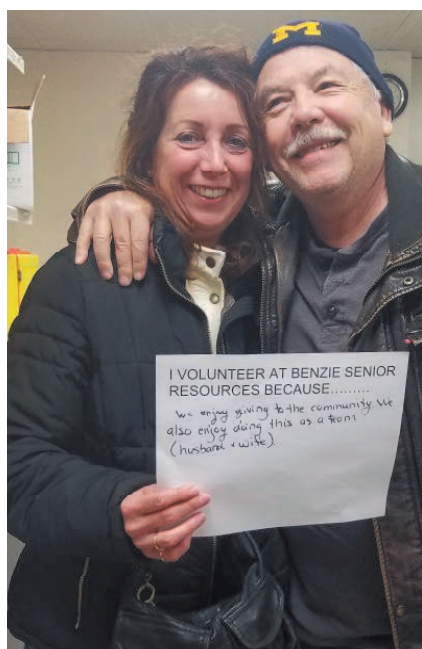 M
I VOLUNTEER AT BENZIE SENIOR
RESOURCES BECAUSE.........
We enjoy giving to the community. We
also enjoy doing this as a team
(husband + wife).